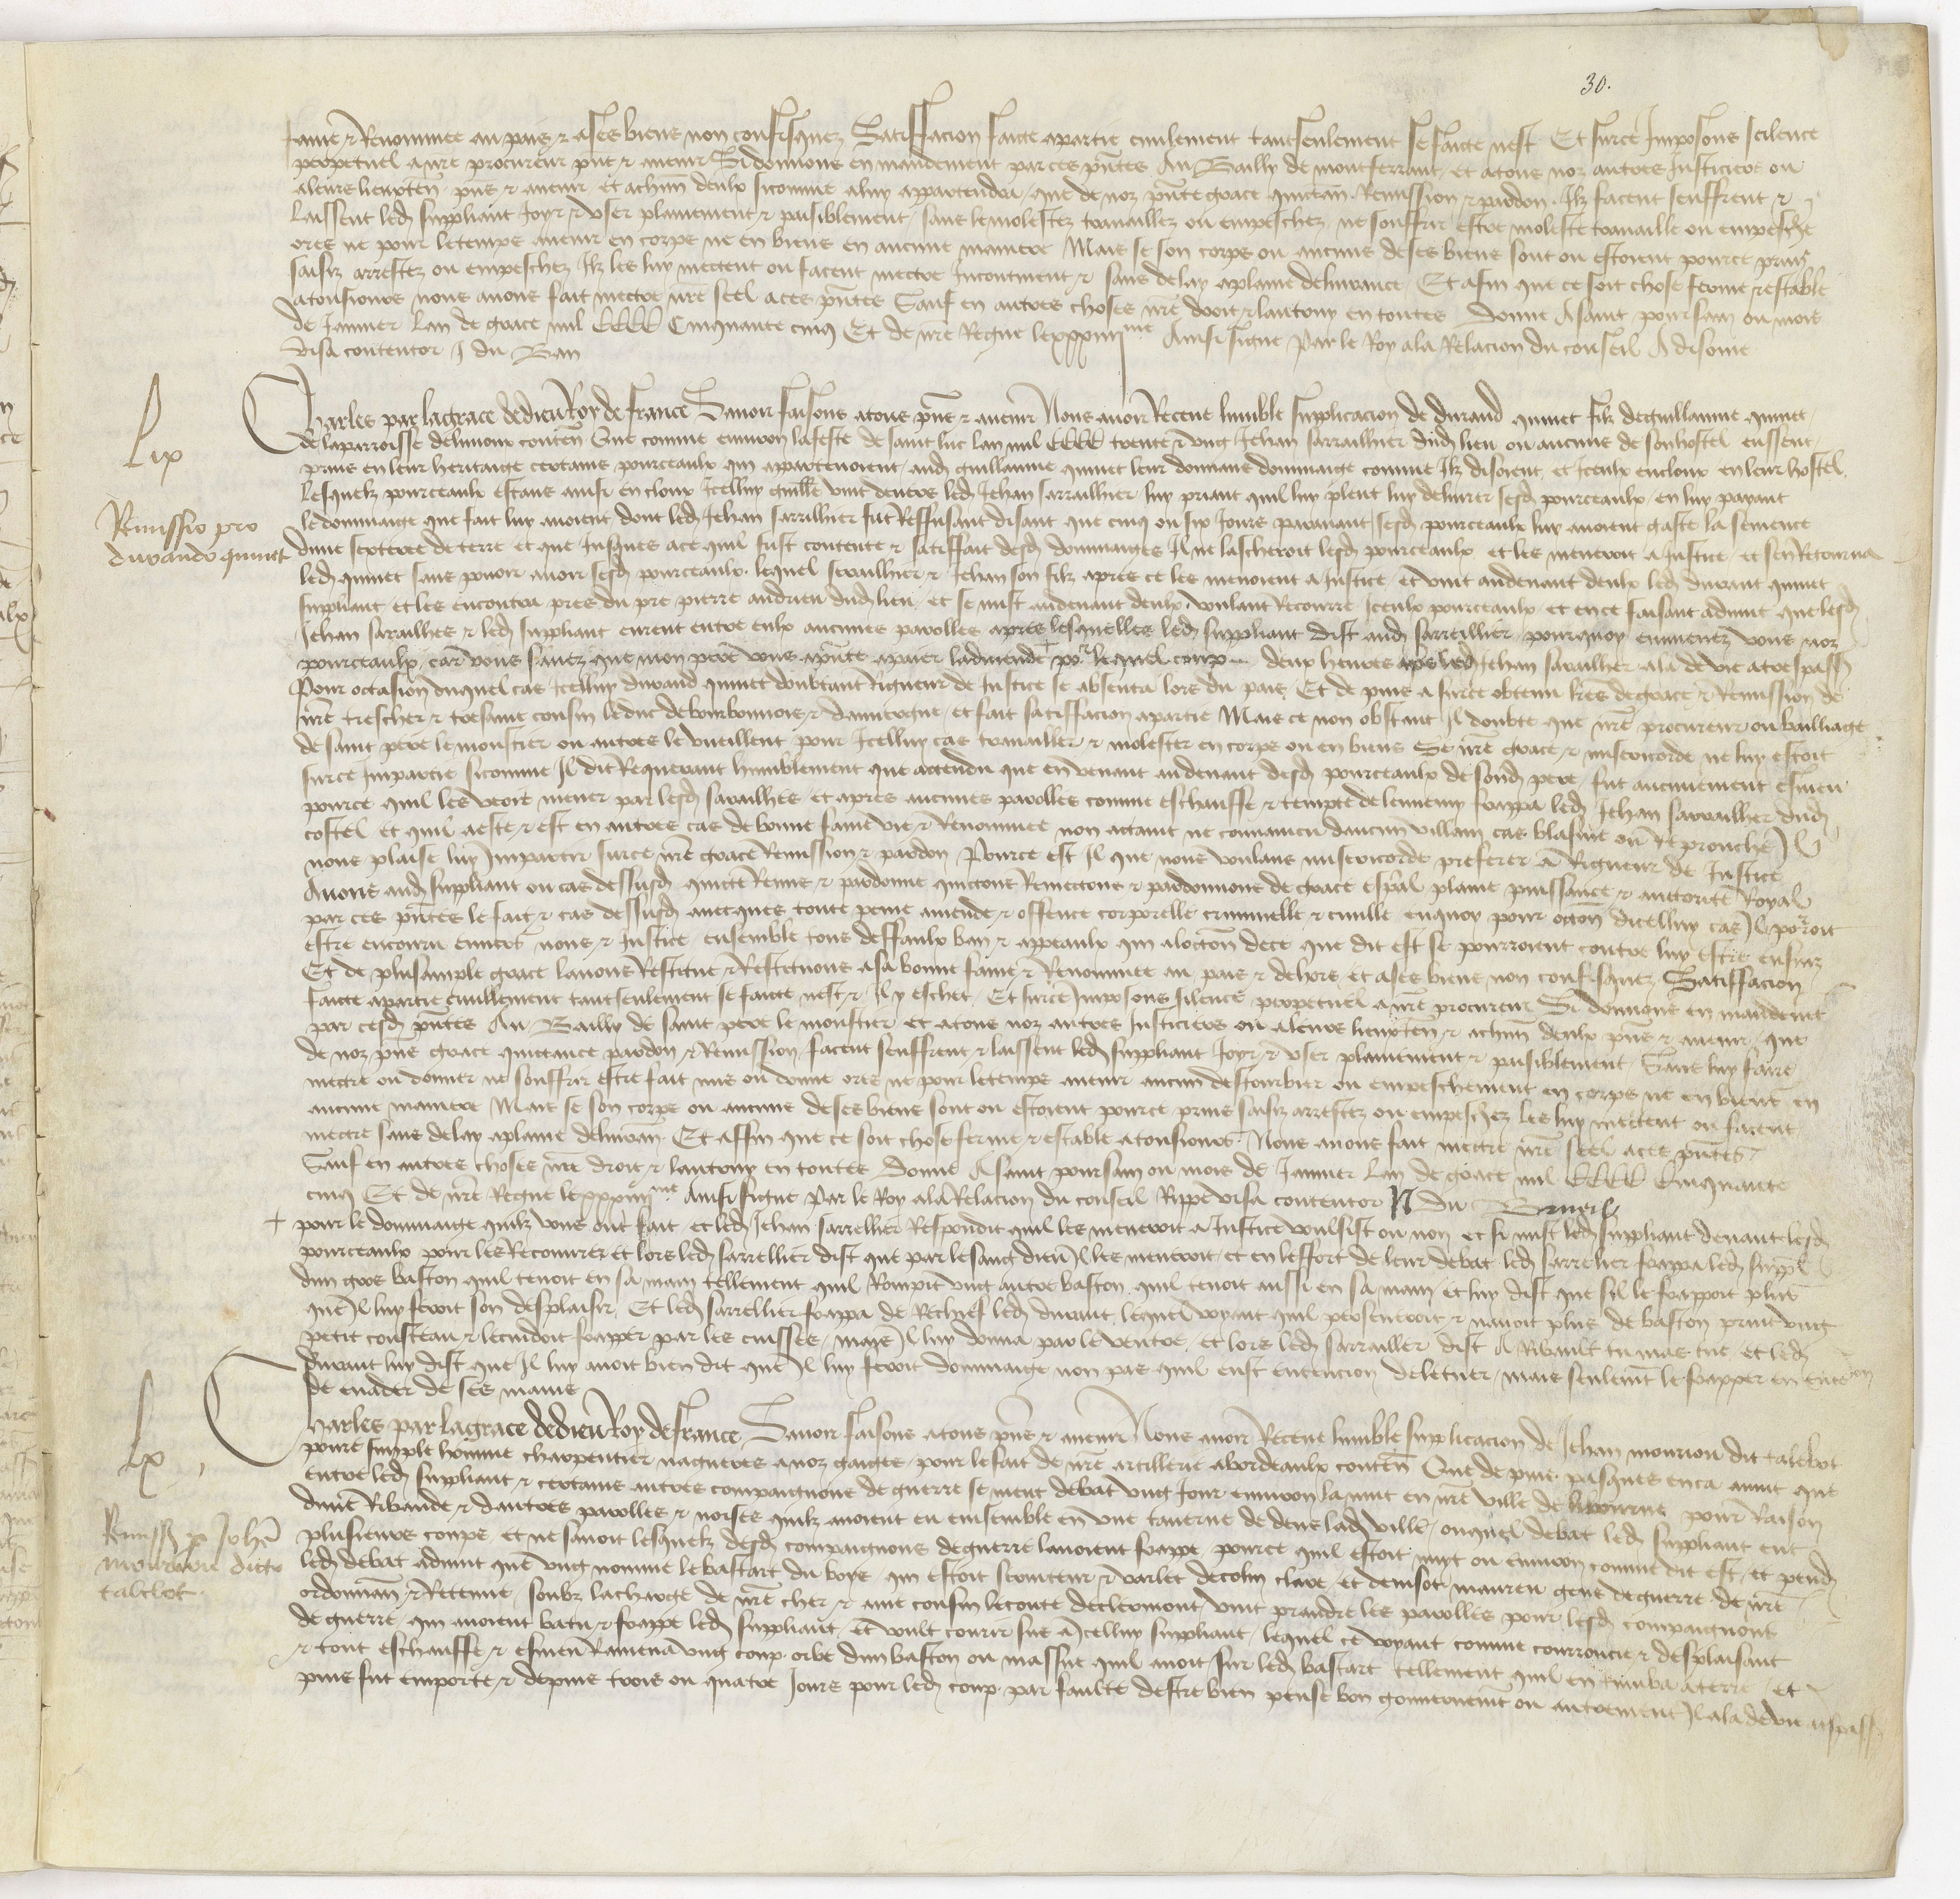 30.
fame et Renommee au pais et a ses biens non confisquez Satisfacion faicte a partie civilement tant seulement se faicte nest Et sur ce Imposons scilence
perpetuel a nre procureur pnt et avenir Si donnons en mandement par ces pntes Au Bailly de montferrant et a tous noz autres Justiciers ou
a leurs lieuxten pns et avenir et a chun deulx si comme a luy appartendra que de noz pnte grace quictan Remission et pardon Ilz facent seuffrent et
laissent led suppliant Joyr et user plainement et paisiblement sans le molester travailler ou empescher ne souffrir estre moleste travaille ou empesche
ores ne pour le temps avenir en corps ne en biens en aucune maniere Mais se son corps ou aucuns de ses biens sont ou estoient pource prins
saisiz arrestez ou empeschez Ilz les luy mectent ou facent mectre Incontinent et sans delay a plaine delivrance Et afin que ce soit chose ferme et estable
a tousiours nous avons fait mectre nre seel a ces pntes Sauf en autres choses nre droit et lautruy en toutes Donne A saint poursain ou mois
de Janvier Lan de grace mil CCCC Cinquante cinq Et de nre Regne le xxxiiii me Ainsi signe Par le Roy a la Relacion du conseil A disome
visa contentor J du Ban
Lix
Remissio pro
durando quinet
Charles par la grace de dieu Roy de france Savoir faisons a tous pns et avenir Nous avoir Receue lumble supplicacion de durand quinet filz de guillaume quinet
de la parroisse de limoux conten Que comme environ la feste de saint luc lan mil CCCC trente et ung Jehan sarrailhier dud lieu ou aucuns de son hostel eussent
prins en leur heritaige certains pourceaulx qui appartenoient aud guillaume quinet leur donnans dommaige comme Ilz disoient et Iceulx encloux en leur hostel
Lesquelz pourceaulx estans ainsi encloux Icelluy guille vint devers led Jehan sarrailhier luy priant quil luy pleut luy delivrer sesd pourceaulx en luy payant
le dommaige que fait luy avoient dont led Jehan sarrailhier fut Reffusant disant que cinq ou six Jours paravant sesd pourceaulx luy avoient gaste la semence
dune sexteree de terre et que Jusques a ce quil fust contente et satisfait desd dommaiges Il ne lascheroit lesd pourceaulx et les meneroit a Justice et sen Retourna
led quinet sans povoir avoir sesd pourceaulx lequel serailhier et Jehan son filz apres ce les menoient a Justice et vint audevant deulx led durant quinet
suppliant et les encontra pres du pre pierre andrieu dud lieu et se mist audevant deulx voulant Recourre Iceulx pourceaulx et en ce faisant advint que lesd
Jehan sarailhes et led suppliant eurent entre eulx aucunes parolles apres lesquelles led suppliant dist aud sarreillier pourquoy enmenez vous noz
pourceaulx car vous savez que mon pere vous apnte apaier ladmende + po r lequel coup deux heures aps led Jehan sarailher ala de vie a trespass
Pour occasion duquel cas Icelluy durand quinet doubtant Rigueur de Justice se absenta lors du pais Et depuis a sur ce obtenu lres de grace et Remission de
nre treschier et tresame cousin le duc de bourbonnois et dauvergne et fait satisfacion a partie Mais ce non obstant Il doubte que nre procureur ou bailliage
de saint pere le moustier ou autres le vueillent pour Icelluy cas travailler et molester en corps ou en biens Se nre grace et misericorde ne luy estoit
sur ce Impartie si comme Il dit Requerant humblement que actendu que en venant audevant desd pourceaulx de sond pere fut aucunement esmeu
pource quil les veoit mener par lesd sarailhes et apres aucunes parolles comme eschauffe et tempte de lennemy frappa led Jehan sarrailher dud
costel et quil a este et est en autres cas de bonne fame vie et Renommee non actaint ne convaincu daucun villain cas blasme ou Reprouche Il
nous plaise luy Impartir sur ce nre grace Remission et pardon Pource est Il que nous voulans misericorde preferer a Rigueur de Justice
Avons aud suppliant ou cas dessusd quicte Remis et pardonne quictons Remectons et pardonnons de grace espal plaine puissance et auctorite Royal
par ces pntes le fait et cas dessusd avecques toute peine amende et offence corporelle criminelle et civille enquoy pour occon dicelluy cas Il pourroit
estre encouru envers nous et Justice ensemble tous deffaulx ban et appeaulx qui a locccon de ce que dit est se pourroient contre luy estre ensuiz
Et de plusample grace lavons Restitue et Restituons a sa bonne fame et Renommee au pais et dehors et a ses biens non confisquez Satisfacion
faicte a partie civillement tant seulement se faicte nest et Il y eschet Et sur ce Imposons silence perpetuel a nre procureur Si donnons en mandemt
par cesd pntes Au Bailly de saint pere le moustier et a tous noz autres Justiciers ou a leurs lieuxten et a chun deulx pns et avenir que
de noz pns grace quictance pardon et Remission facent seuffrent et laissent led suppliant Joyr et user plainement et paisiblement Sans luy faire
mectre ou donner ne souffrir estre fait mis ou donne ores ne pour le temps avenir aucun destourbier ou empeschement en corps ne en biens en
aucune maniere Mais se son corps ou aucuns de ses biens sont ou estoient pource prins saisiz arrestez ou empeschez les luy mectent ou facent
mectre sans delay a plaine delivran Et affin que ce soit chose ferme et estable a tousiours Nous avons fait mectre nre seel a ces pntes
Sauf en autres choses nre droit et lautruy en toutes Donne A saint poursain ou mois de Janvier Lan de grace mil CCCC Cinquante
cinq Et de nre Regne le xxxiiii me Ainsi signe Par le Roy a la Relacion du conseil Rippe visa contentor N Du Brueil
+ pour le dommaige quilz vous ont fait et led Jehan sarrellier Respondit quil les meneroit a Justice voulsist ou non et si mist led suppliant devant lesd
pourceaulx pour les Recouvrer et lors led sarrellier dist que par le sang dieu Il les meneroit et en leffort de leur debat led sarrelier frappa led suppl
dun gros baston quil tenoit en sa main tellement quil Rompit ung autre baston quil tenoit aussi en sa main et luy dist que sil le frappoit plus
que Il luy feroit son desplaisir Et led sarrellier frappa de Rechief led durant lequel voyant quil persevroit et navoit plus de baston print ung
petit cousteau et le cuidoit frapper par les cuisses mais Il luy donna par le ventre et lors led sarrailler dist A Ribault tu mas tue et led
durant luy dist que Il luy avoit bien dit que Il luy feroit dommaige non pas quil eust entencion de le tuer mais seulemt le frapper en entencion
de evader de ses mains
Lx
Remiss p Johe
mourion dicto
talebot
Charles par la grace de dieu Roy de france Savoir faisons a tous pns et avenir Nous avoir Receue lumble supplicacion de Jehan mourion dit talebot
povre simple homme charpentier nagueres a noz gaiges pour le fait de nre artillerie a bordeaulx conten Que depuis pasques enca avint que
entre led suppliant et certains autres compaignons de guerre se meut debat ung Jour environ la nuit en nre ville de libourne pour Raison
dune Ribaude et dautres parolles et noises quilz avoient eu ensemble en une taverne de dens lad ville ouquel debat led suppliant eut
plusieurs coups et ne savoit lesquelz desd compaignons de guerre lavoient frappe pource quil estoit nuyt ou environ comme dit est et pend
led debat advint que ung nomme le bastart du boys qui estoit serviteur et varlet de colin clave et denisot maureu gens de guerre de nre
ordonnan et Retenue soubz la charge de nre cher et ame cousin le conte de clermont vint prandre les parolles pour lesd compaignons
de guerre qui avoient batu et frappe led suppliant et voult courir sus a Icelluy suppliant lequel ce voyant comme courroucie et desplaisant
et tout eschauffe et esmeu Ramena ung coup orbe dun baston ou massue quil avoit sur led bastart tellement quil en tumba a terre et
puis fut emporte et depuis trois ou quatre Jours pour led coup par faulte destre bien pense bon gouvernemt ou autrement Il ala de vie a trspass